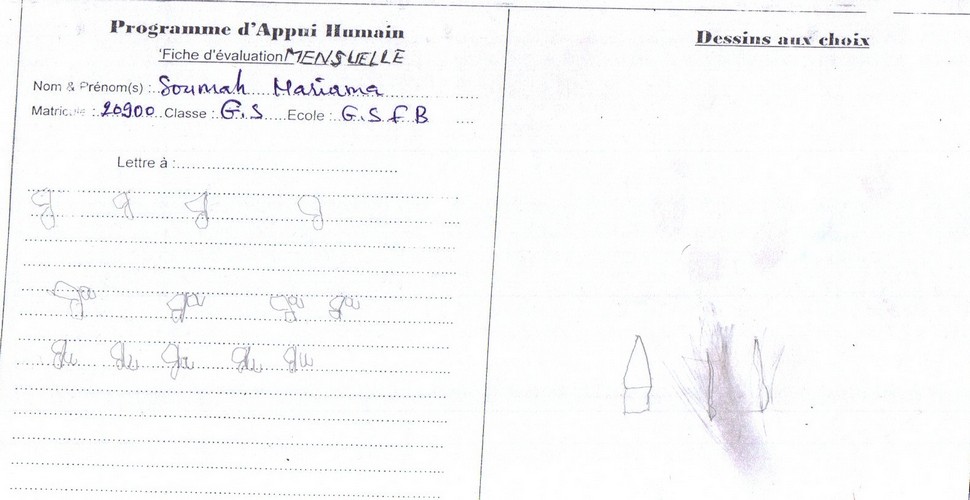 Programme d'Appui Humain
Fiche d'évaluation MENSUELLE
Nom & Prénom(s) : Soumah Mariama
Matricule : 20900 Classe : G.S Ecole : G.S F B
Lettre à :
g g g g
ga ga ga ga
gu gu ga gu gu
Dessins aux choix